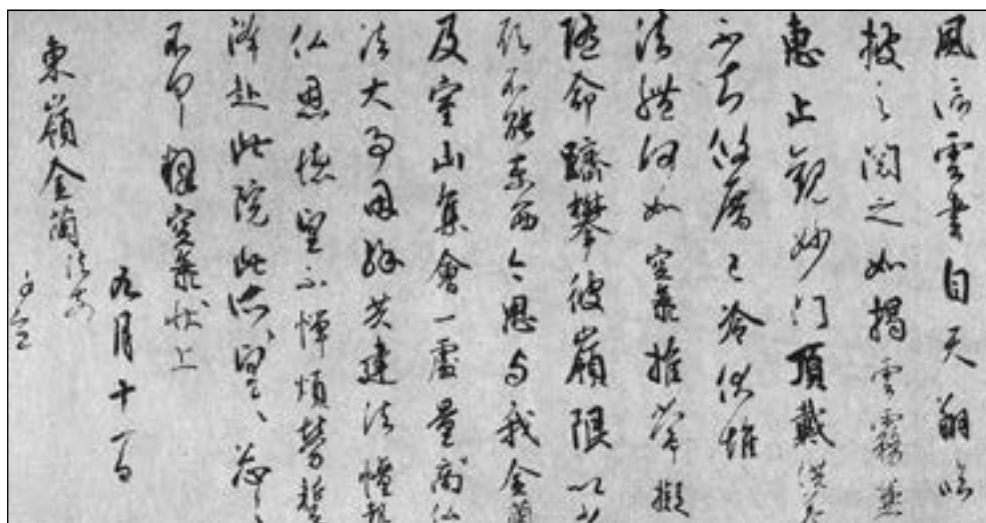 風信雲書自天翔臨
披之閱之如揭雲霧兼
惠止観妙門頂戴供養
不知攸厝已冷伏惟
法體何如空海推常擬
隨命躋攀彼嶺限以少
願不能東西今思与我金蘭
及室山集會一處量商仏
法大事因緣共建法幢報
仏恩徳望不憚煩勞蹔
降赴此院此所望々忩々
不具釋空海狀上
九月十一日
東嶺金蘭法前